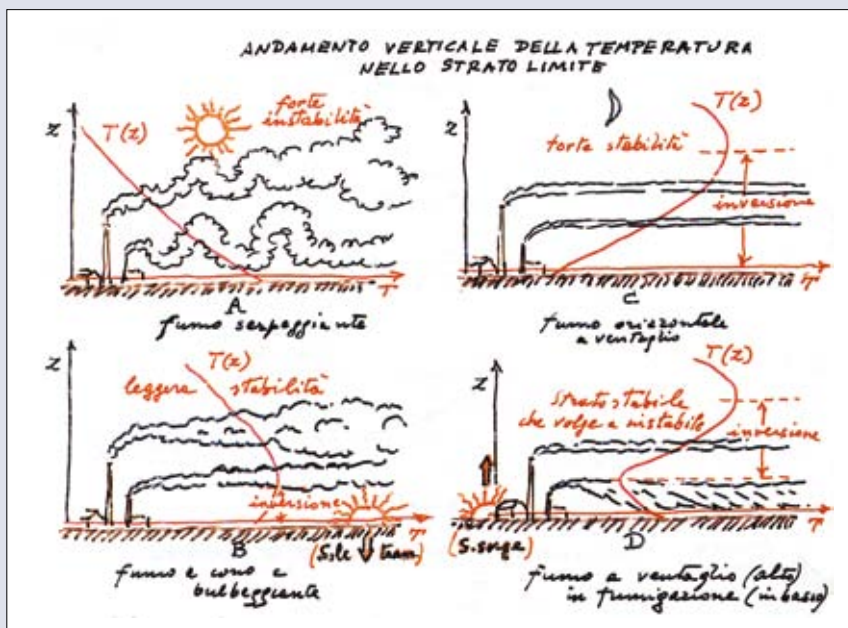 ANDAMENTO VERTICALE DELLA TEMPERATURA
NELLO STRATO LIMITE
Z
T(z)
forte
instabilità
T
A
fumo serpeggiante
Z
T(z)
forte stabilità
inversione
T
C
fumo orizzontale
a ventaglio
Z
T(z)
leggera stabilità
inversione
T
B
(Sole tram)
fumo a cono e
bulbeggiante
Z
T(z)
strato stabile
che volge a instabile
inversione
T
(S. sorge)
D
fumo a ventaglio (alto)
in fumigazione (in basso)